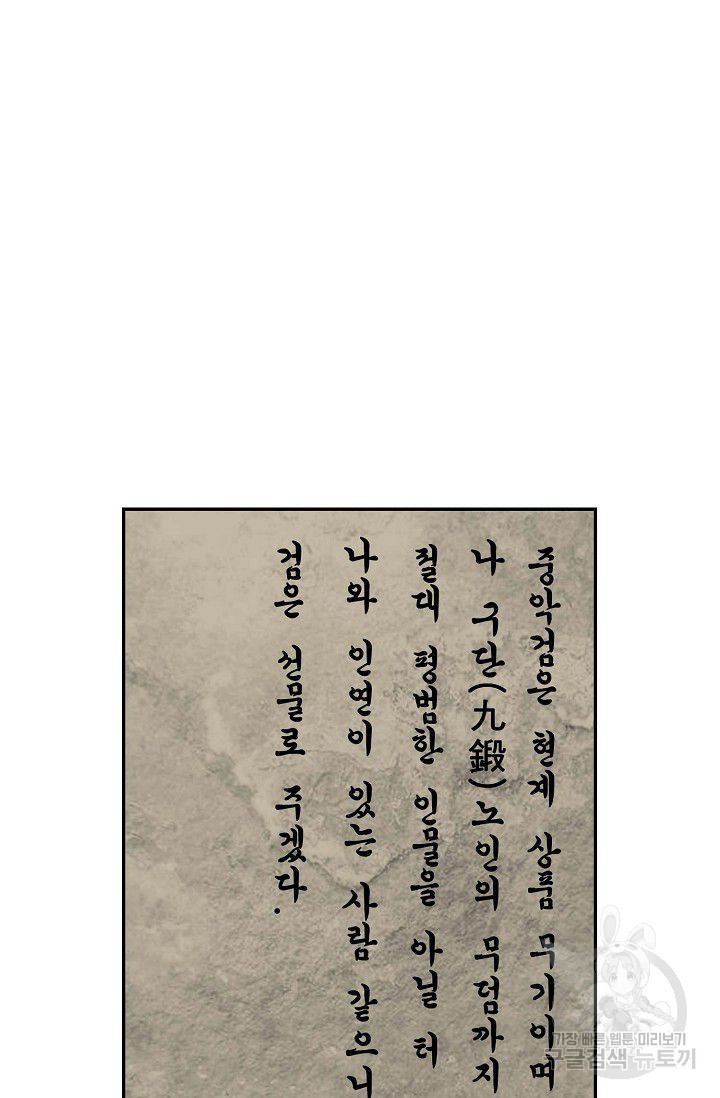 중악검은 현계 상품 무기이며
나 구단(九鍛)노인의 무덤까지
절대 평범한 인물을 아닐 터
나와 인연이 있는 사람 같으니
검은 선물로 주겠다.
가장 빠른 웹툰 미리보기
구글검색 뉴토끼